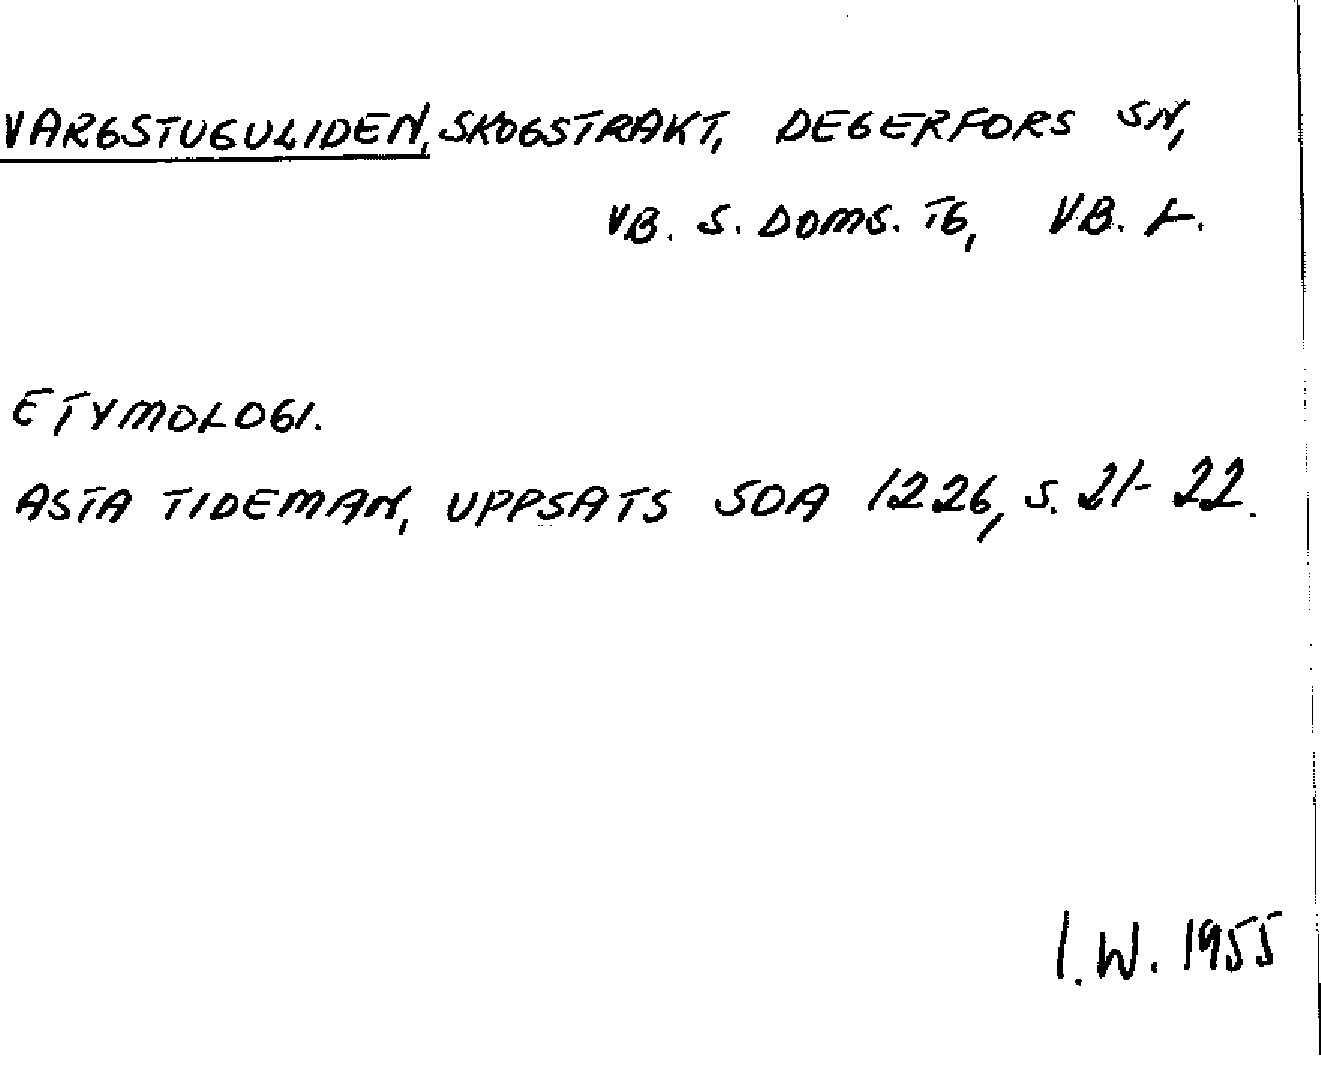 VARGSTUGULIDEN, SKOGSTRAKT, DEGERFORS SN,
VB. S. DOMS. TG, VB. L.
ETYMOLOGI.
ASTA TIDEMAN, UPPSATS SOA 1226, S. 21-22.
I.W. 1955